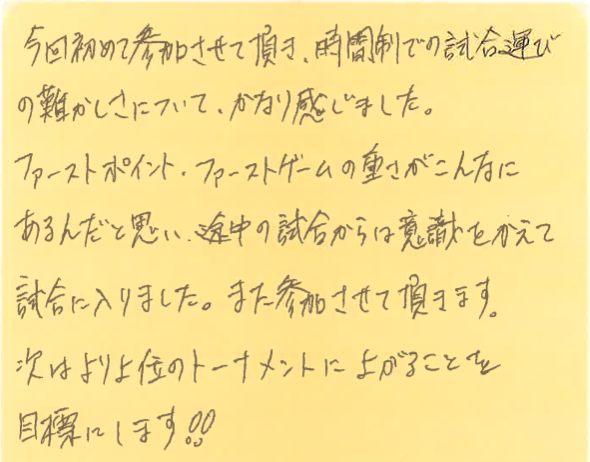 今回初めて参加させて頂き、時間制での試合運び
の難かしさについて、かなり感じました。
ファーストポイント・ファーストゲームの重さがこんなに
あるんだと思い、途中の試合からは意識をかえて
試合に入りました。また参加させて頂きます。
次はより上位のトーナメントに上がることを
目標にします!!